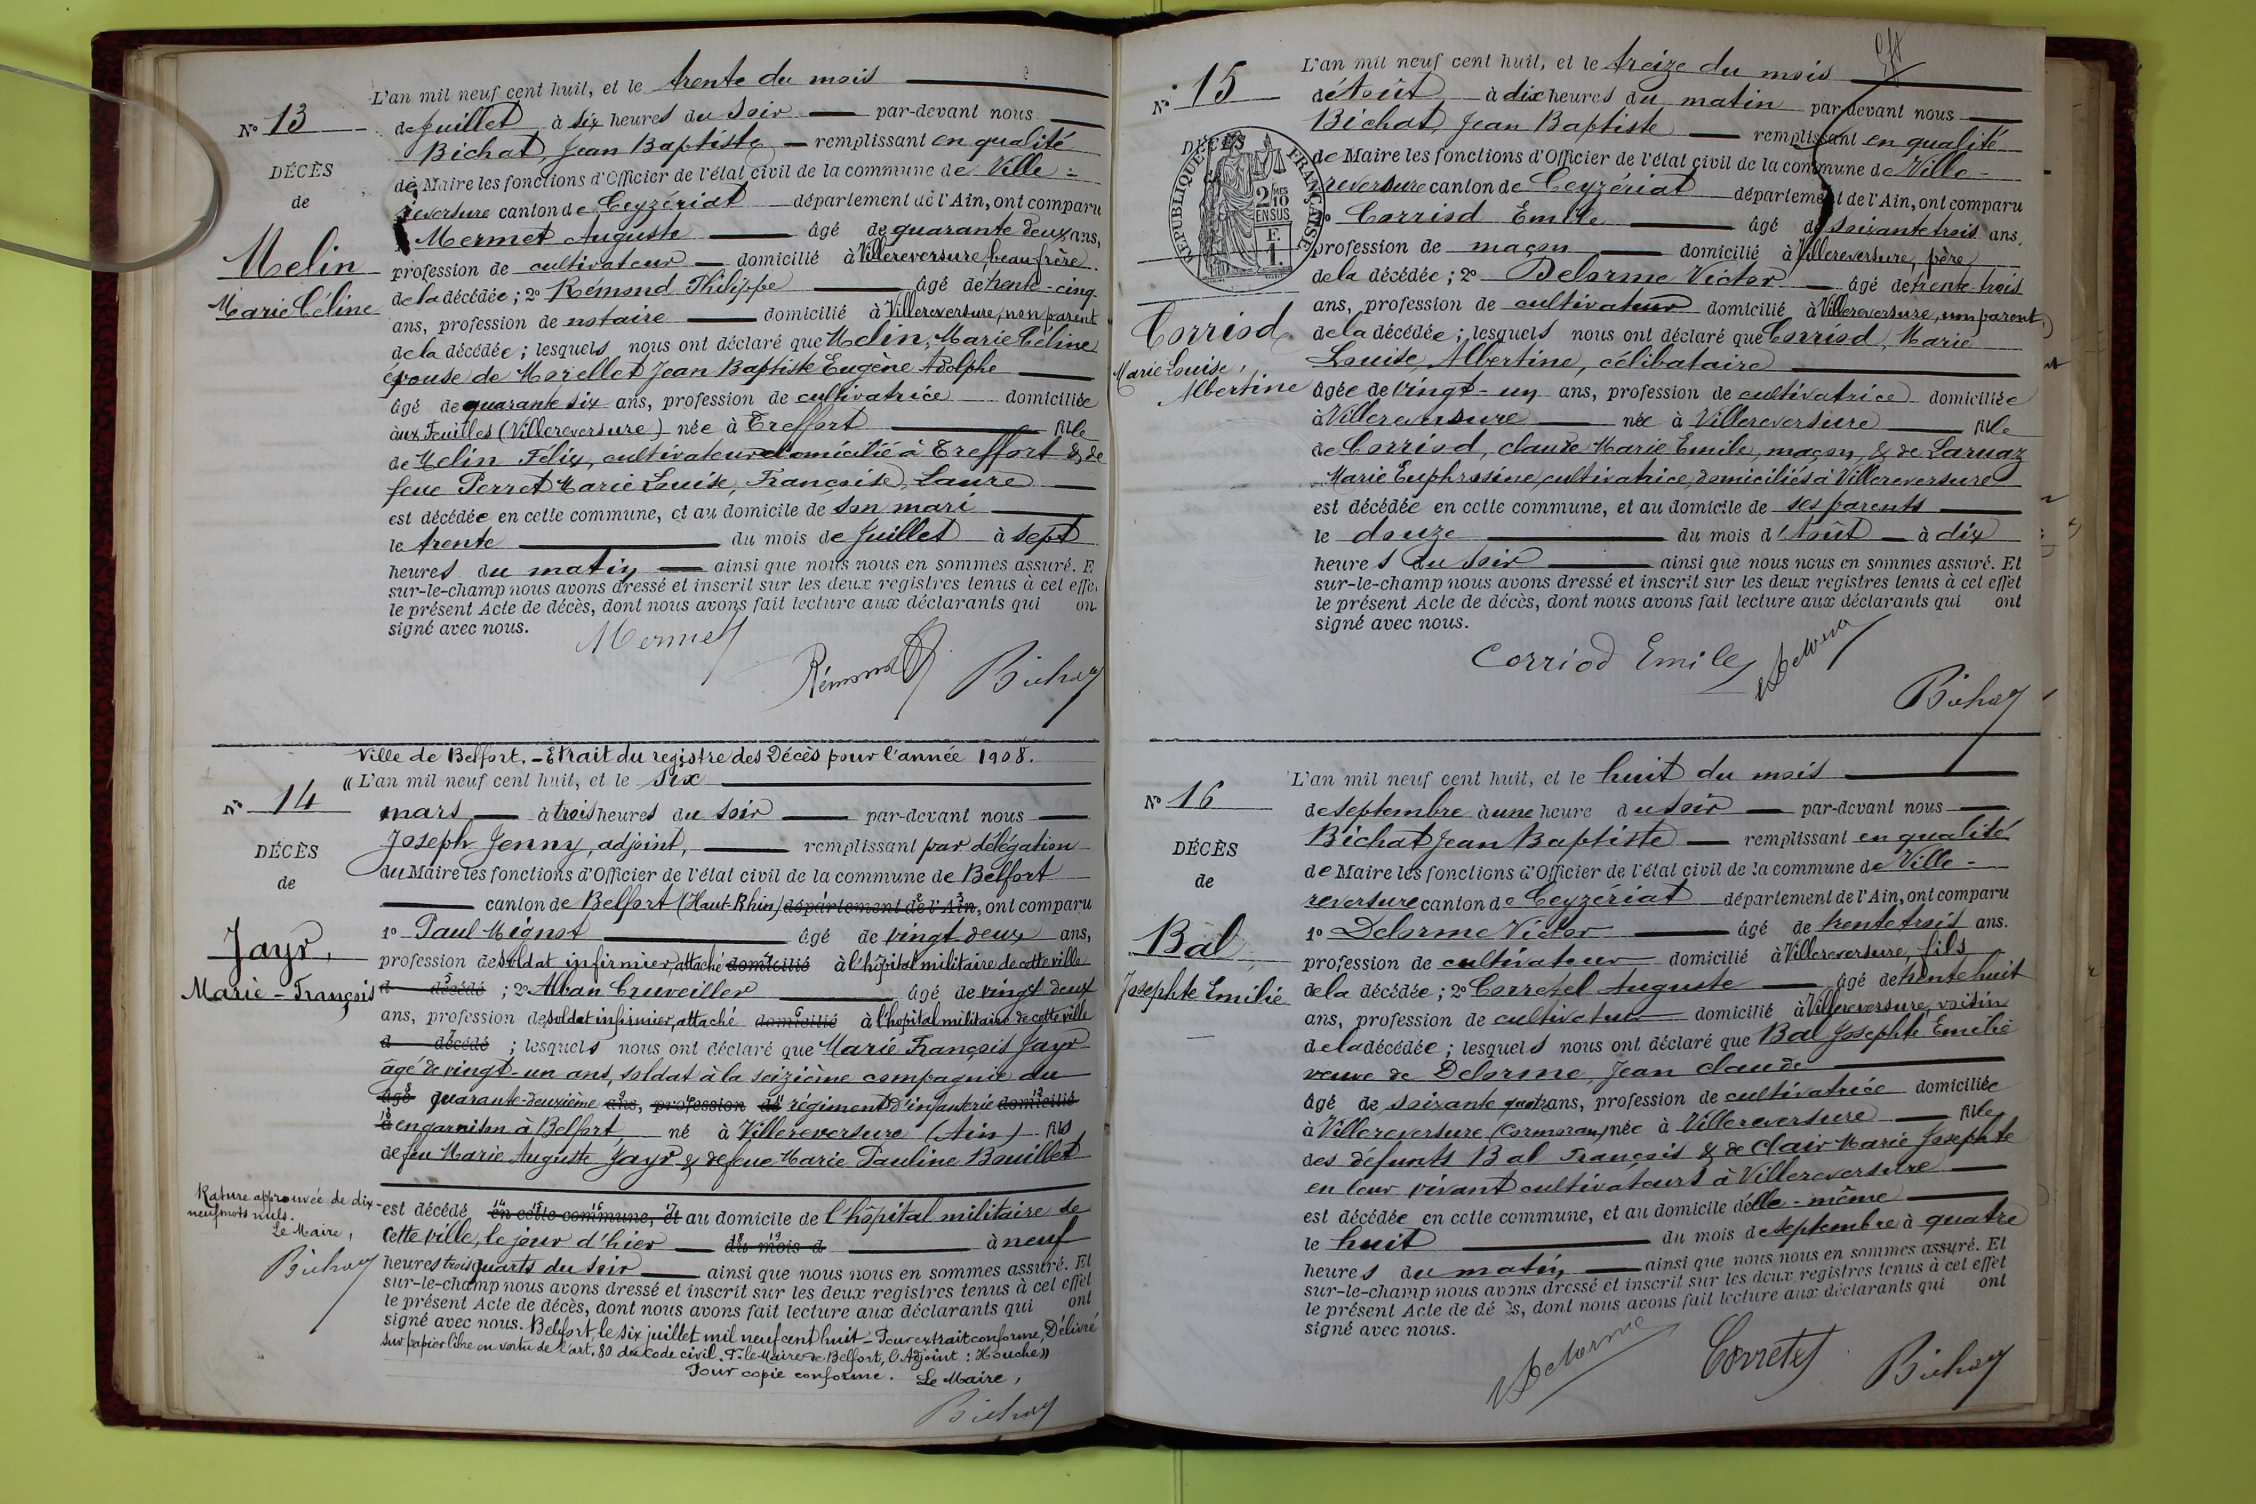 L'an mil neuf cent huit, et le trente du mois
N° 13
de Juillet à six heures du soir par-devant nous
Bichat, Jean Baptiste remplissant en qualité
DÉCÈS
de Maire les fonctions d'Officier de l'état civil de la commune de Ville-
de
reversure canton de Ceyzériat département de l'Ain, ont comparu
Mermet Auguste âgé de quarante deux ans,
Melin
profession de cultivateur domicilié à Villereversure, beau frère
Marie Céline
de la décédée ; 2° Rémond Philippe âgé de trente-cinq
ans, profession de notaire domicilié à Villereversure, non parent
de la décédée ; lesquels nous ont déclaré que Melin, Marie Céline
épouse de Morellet Jean Baptiste Eugène Adolphe
âgé de quarante six ans, profession de cultivatrice domiciliée
aux Feuilles (Villereversure) née à Treffort fille
de Melin Félix, cultivateur domicilié à Treffort & de
feue Perret Marie Louise, Françoise, Laure
est décédée en cette commune, et au domicile de son mari
le trente du mois de Juillet à sept
heures du matin ainsi que nous nous en sommes assuré. E
sur-le-champ nous avons dressé et inscrit sur les deux registres tenus à cet effe
le présent Acte de décès, dont nous avons fait lecture aux déclarants qui on
signé avec nous.
Mermet
Rémond
Bichat
Ville de Belfort. - Extrait du registre des Décès pour l'année 1908.
« L'an mil neuf cent huit, et le six
N° 14
mars à trois heures du soir par-devant nous
Joseph Jenny, adjoint, remplissant par délégation
DÉCÈS
du Maire les fonctions d'Officier de l'état civil de la commune de Belfort
de
canton de Belfort (Haut-Rhin) département de l'Ain, ont comparu
1° Paul Mignot âgé de vingt deux ans,
Jayr,
profession de soldat infirmier, attaché domicilié à l'hôpital militaire de cette ville
Marie-François
d décédé ; 2° Alban Cruveiller âgé de vingt deux
ans, profession de soldat infirmier, attaché domicilié à l'hôpital militaire de cette ville
d décédé ; lesquels nous ont déclaré que Marie François Jayr
âgé de vingt-un ans, soldat à la seizième compagnie du
âgé quarante-deuxième ans, profession de régiment d'infanterie domicilié
à en garnison à Belfort né à Villereversure (Ain) fils
de feu Marie Auguste Jayr & de feue Marie Pauline Bouillet
Rature approuvée de dix-
neuf mots nuls.
Le Maire,
Bichat
est décédé en cette commune, et au domicile de l'hôpital militaire de
cette ville, le jour d'hier du mois d à neuf
heures trois quarts du soir ainsi que nous nous en sommes assuré. Et
sur-le-champ nous avons dressé et inscrit sur les deux registres tenus à cet effet
le présent Acte de décès, dont nous avons fait lecture aux déclarants qui ont
signé avec nous. Belfort, le six juillet mil neuf cent huit - Pour extrait conforme, Délivré
sur papier libre en vertu de l'art. 80 du code civil. P. le Maire de Belfort, l'Adjoint : Houche »
Pour copie conforme. Le Maire,
Bichat
L'an mil neuf cent huit, et le treize du mois
N° 15
d'Août à dix heures du matin par-devant nous
Bichat, Jean Baptiste remplissant en qualité
DÉCÈS
RÉPUBLIQUE FRANÇAISE
2/10 MES
EN SUS
F.
1.
de Maire les fonctions d'Officier de l'état civil de la commune de Ville-
reversure canton de Ceyzériat département de l'Ain, ont comparu
1° Corriod Emile âgé de soixante trois ans,
profession de maçon domicilié à Villereversure, père
de la décédée ; 2° Delorme Victor âgé de trente trois
ans, profession de cultivateur domicilié à Villereversure, non parent
Corriod
Marie Louise,
Albertine
de la décédée ; lesquels nous ont déclaré que Corriod, Marie
Louise, Albertine, célibataire
âgée de vingt-un ans, profession de cultivatrice domiciliée
à Villereversure née à Villereversure fille
de Corriod, claude Marie Emile, maçon, & de Laruaz
Marie Euphrosine, cultivatrice, domiciliés à Villereversure
est décédée en cette commune, et au domicile de ses parents
le douze du mois d'Août à dix
heures du soir ainsi que nous nous en sommes assuré. Et
sur-le-champ nous avons dressé et inscrit sur les deux registres tenus à cet effet
le présent Acte de décès, dont nous avons fait lecture aux déclarants qui ont
signé avec nous.
Corriod Emile
Delorme
Bichat
L'an mil neuf cent huit, et le huit du mois
N° 16
de septembre à une heure du soir par-devant nous
Bichat Jean Baptiste remplissant en qualité
DÉCÈS
de Maire les fonctions d'Officier de l'état civil de la commune de Ville-
de
reversure canton de Ceyzériat département de l'Ain, ont comparu
1° Delorme Victor âgé de trente trois ans.
Bal
profession de cultivateur domicilié à Villereversure, fils
Josephte Emilie
de la décédée ; 2° Corretel Auguste âgé de trente huit
ans, profession de cultivateur domicilié à Villereversure, voisin
de la décédée ; lesquels nous ont déclaré que Bal Josephte Emilie
veuve de Delorme, Jean claude
âgé de soixante quatre ans, profession de cultivatrice domiciliée
à Villereversure (Cormoran) née à Villereversure fille
des défunts Bal François & de Clair Marie Josephte
en leur vivant cultivateurs à Villereversure
est décédée en cette commune, et au domicile d'elle-même
le huit du mois de septembre à quatre
heures du matin ainsi que nous nous en sommes assuré. Et
sur-le-champ nous avons dressé et inscrit sur les deux registres tenus à cet effet
le présent Acte de décès, dont nous avons fait lecture aux déclarants qui ont
signé avec nous.
Delorme
Corretel
Bichat